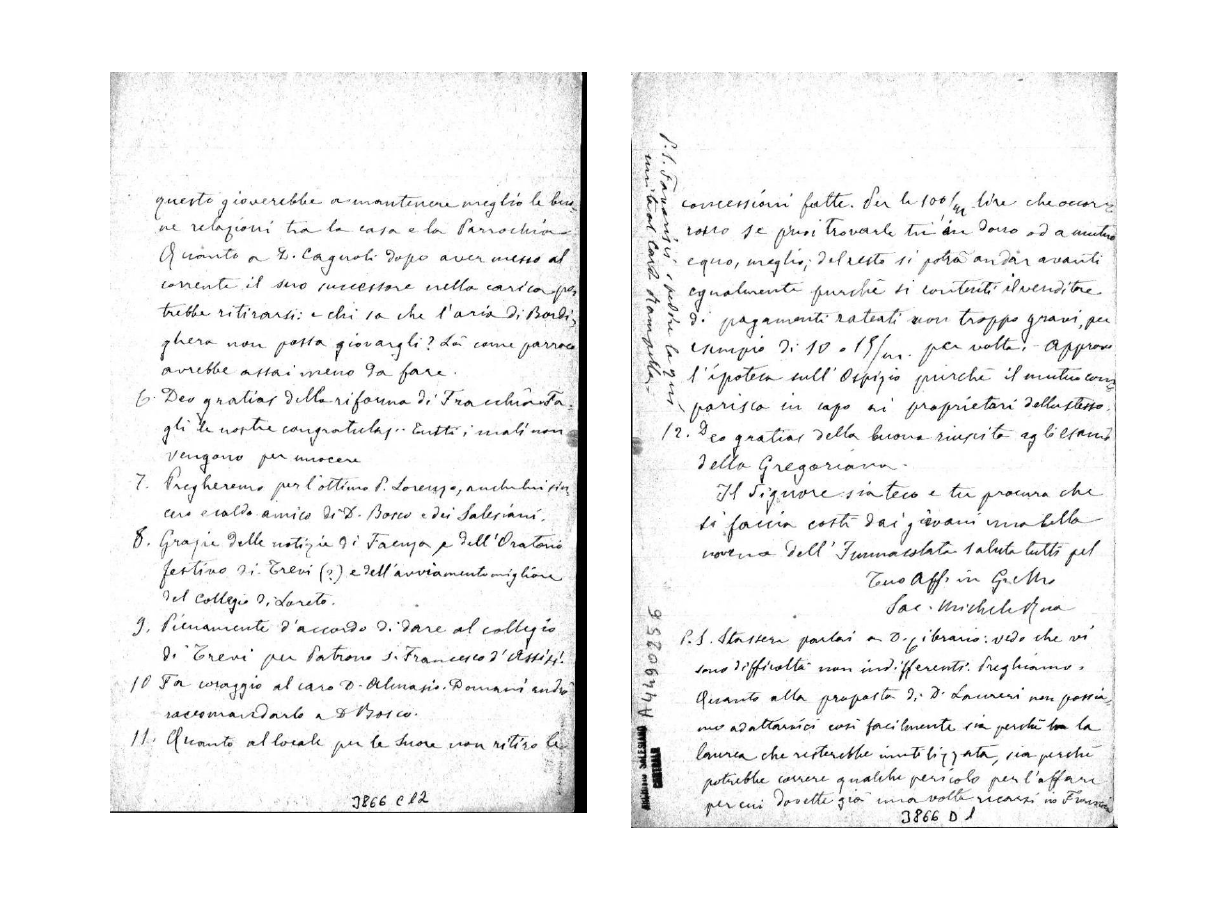 questo gioverebbe a mantenere meglio le buo-
ne relazioni tra la casa e la Parrochia
Quanto a D. Cagnoli dopo aver messo al
corrente il suo successore nella carica po-
trebbe ritirarsi: e chi sa che l'aria di Bordi-
ghera non possa giovargli? Là come parroco
avrebbe assai meno da fare.
6. Deo gratias della riforma di Fracchia Fa-
gli le nostre congratulaz.. Tutti i mali non
vengono per nuocere
7. Pregheremo per l'ottimo P. Lorenzo, anche lui sin
cero e caldo amico di D. Bosco e dei Salesiani.
8. Grazie delle notizie di Faenza e dell'Oratorio
festivo di Trevi (?) e dell'avviamento migliore
del collegio di Loreto.
9. Pienamente d'accordo di dare al collegio
di Trevi per Patrono S. Francesco d'Assisi.
10 Fa coraggio al caro D. Domani andrò
raccomandarlo a D Bosco.
11. Quanto al locale per le Suore non ritiro le
3866 C 12
P.S. Favorisci spedire la qui
unita al Card.
concessioni fatte. Per le 100/m lire che occor-
rono se puoi trovarle tu in dono od a mutuo
equo, meglio; del resto si potrà andar avanti
egualmente purchè si contenti il venditore
di pagamenti rateati non troppo gravi, per
esempio di 10 o 15/m. per volta. - Approvo
l'ipoteca sull'Ospizio purchè il mutuo com
parisca in capo ai proprietari dello stesso.
12. Deo gratias della buona riuscita agli esami
della Gregoriana.
Il Signore sia teco e tu procura che
si faccia costì dai giovani una bella
novena dell'Immacolata saluta tutti pel
Tuo Aff. in G. e M.
Sac. Michele Rua
P.S. Stassera parlai a D. Cibrario: vedo che vi
sono difficoltà non indifferenti. Preghiamo.
Quanto alla proposta di D. Laureri non possia-
mo adattarvici così facilmente sia perchè ha la
laurea che resterebbe inutilizzata, sia perchè
potrebbe correre qualche pericolo per l'affare
per cui dovette già una volta recarsi in Francia
ARCHIVIO SALESIANO
CENTRALE
A4490 9 5 6
3866 D 1